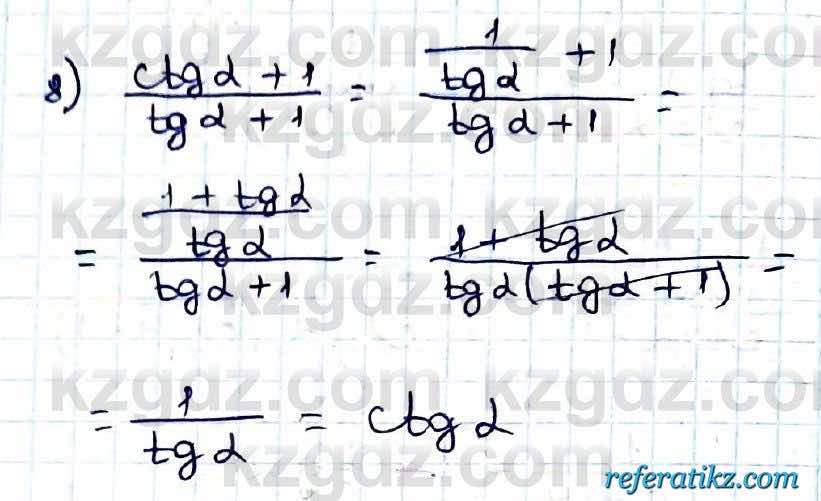 8) (ctg α + 1)/(tg α + 1) = (1/(tg α) + 1)/(tg α + 1) =
= ((1 + tg α)/(tg α))/(tg α + 1) = (1 + tg α)/(tg α (tg α + 1)) =
= 1/(tg α) = ctg α
kzgdz.com
referatikz.com